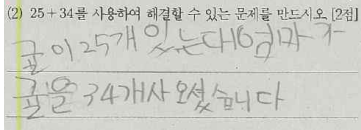 (2) 25+34를 사용하여 해결할 수 있는 문제를 만드시오 [2점]
귤이 25개 있는대 엄마가
귤을 34개 사오셨습니다